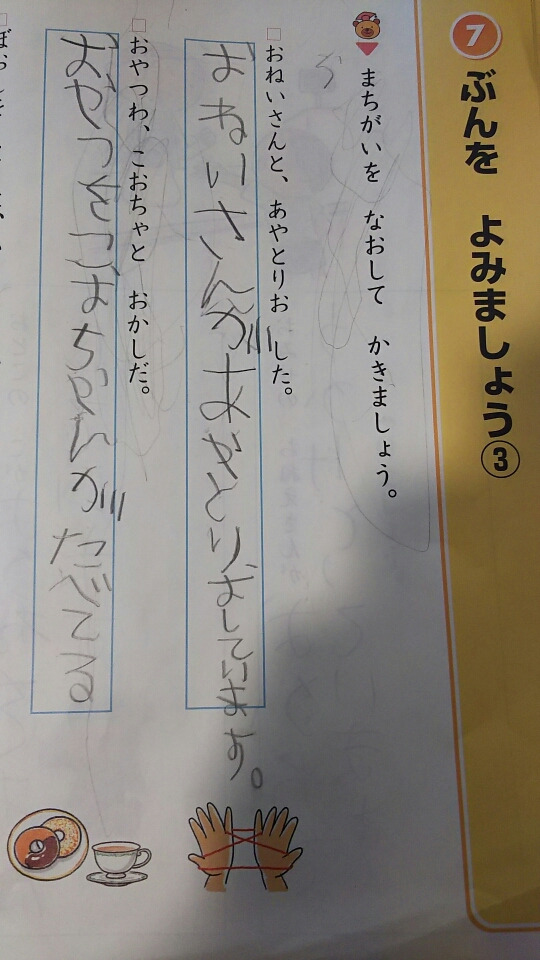 7 ぶんを よみましょう③
まちがいを なおして かきましょう。
おねいさんと、あやとりお した。
おねいさんが あやとりおしています。
おやつわ、こおちゃと おかしだ。
おやつをこおちゃんが たべてる